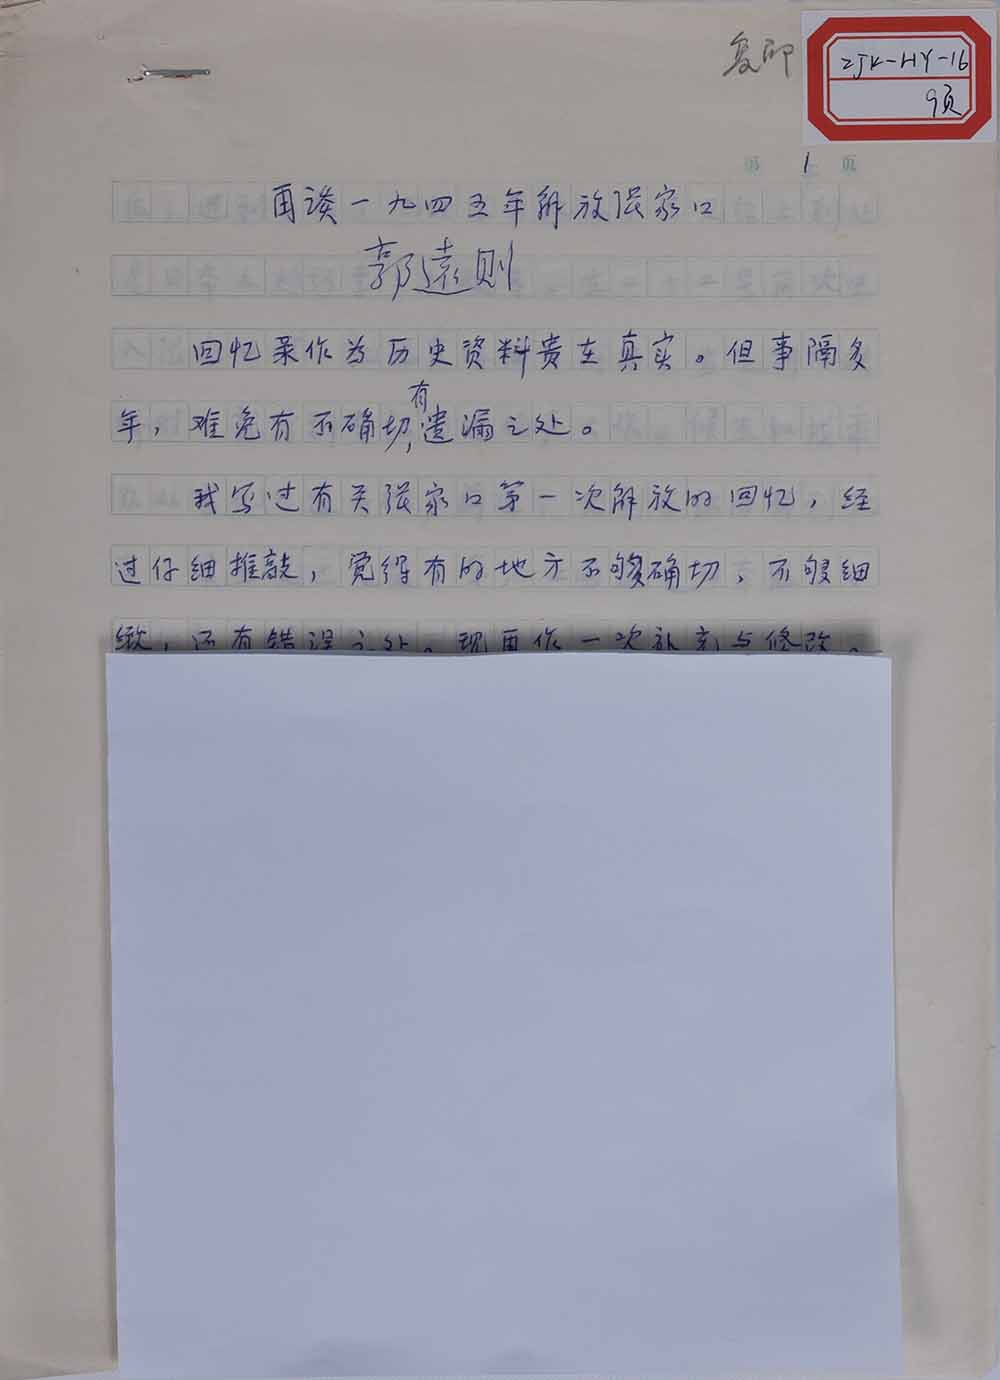 复印
ZJK-HY-16
9页
第 1 页
再谈一九四五年解放张家口
郭远则
回忆录作为历史资料贵在真实。但事隔多
年，难免有不确切，有遗漏之处。
我写过有关张家口第一次解放的回忆，经
过仔细推敲，觉得有的地方不够确切、不够细
緻，还有错误之处。现再作一次补充与修改。